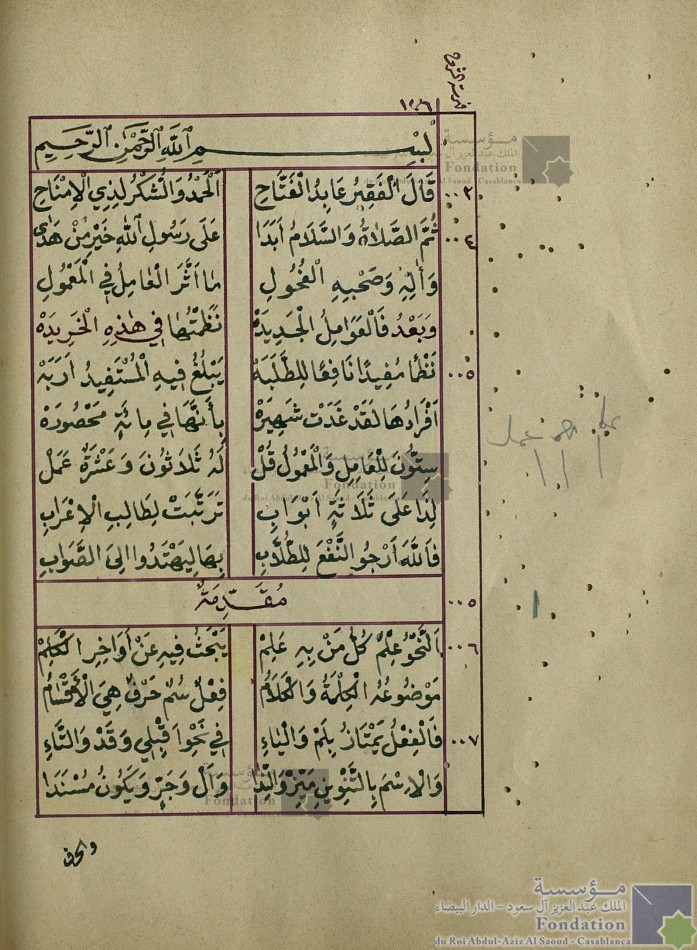 فهرست الشروح
١٠٦
بسم اللّٰه الرَّحْمٰنِ الرَّحِيمِ
٠٠٣ قَالَ الْفَقِيرُ عَابِدُ الْفَتَّاحِ اَلْحَمْدُ وَالشُّكْرُ لِذِي الْاِمْنَاحِ
٠٠٤ ثُمَّ الصَّلَاةُ وَالسَّلَامُ اَبَدَا عَلَى رَسُولِ اللّٰهِ خَيْرِ مَنْ هَدٰى
وَاٰلِهِ وَصَحْبِهِ الْفُحُولِ مَا اَثَّرَ الْعَامِلُ فِي الْمَعْمُولِ
وَبَعْدُ فَالْعَوَامِلُ الْجَدِيدَهْ نَظَمْتُهَا فِي هٰذِهِ الْخَرِيدَهْ
٠٠٥ نَظْمًا مُفِيدًا نَافِعًا لِلطَّلَبَهْ يَبْلُغُ فِيهِ الْمُسْتَفِيدُ اَرَبَهْ
اَفْرَادُهَا لَقَدْ غَدَتْ شَهِيرَهْ بِأَنَّهَا فِي مِائَةٍ مَحْصُورَهْ
سِتُّونَ لِلْعَامِلِ وَالْمَعْمُولُ قُلْ لَهُ ثَلَاثُونَ وَعَشْرَةٌ عَمَلْ
لِذَا عَلَى ثَلَاثَةٍ اَبْوَابِ تَرَتَّبَتْ لِطَالِبِ الْاِعْرَابِ
فَاللّٰهَ اَرْجُو النَّفْعَ لِلطُّلَّابِ بِهَا لِيَهْتَدُوا اِلَى الصَّوَابِ
٠٠٥ مُقَدِّمَةٌ
٠٠٦ اَلنَّحْوُ عِلْمٌ كُلُّ مَنْ بِهِ عَلِمْ يَبْحَثُ فِيهِ عَنْ اَوَاخِرِ الْكَلِمْ
مَوْضُوعُهُ الْكِلْمَةُ وَالْكَلَامُ فِعْلٌ سُمٌ حَرْفٌ هِيَ الْأَقْسَامُ
٠٠٧ فَالْفِعْلُ يَمْتَازُ بِلَمْ وَالْيَاءِ فِي نَحْوِ اَقْبِلِي وَقَدْ وَالتَّاءِ
وَالْاِسْمَ بِالتَّنْوِينِ مَيِّزْ وَالنِّدَا وَاَلْ وَجَرٍّ وَيَكُونُ مُسْنَدَا
والحرف
مؤسسة
الملك عبد العزيز آل سعود - الدار البيضاء
Fondation
du Roi Abdul-Aziz Al Saoud - Casablanca